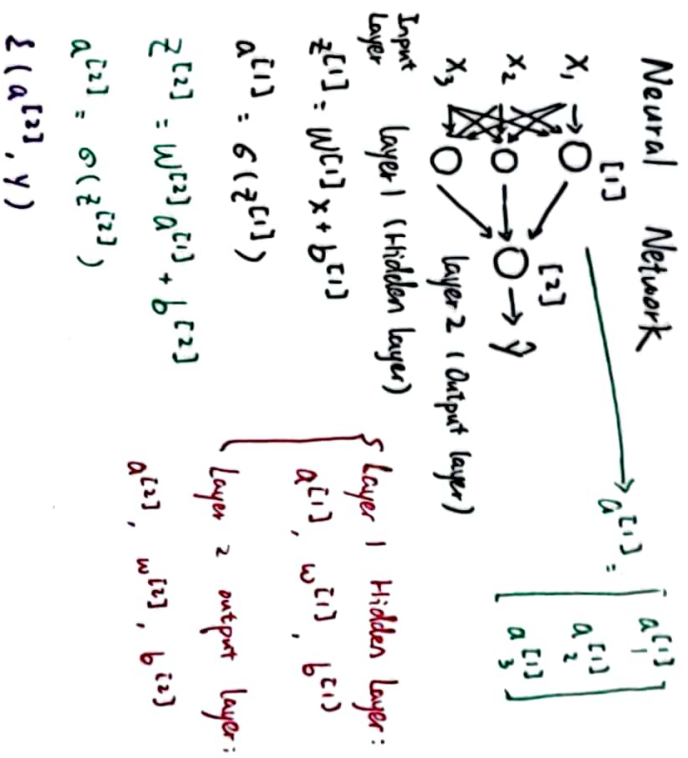 Neural Network
[1]
x₁
x₂
x₃
[2]
ŷ
Input Layer
layer 1 (Hidden layer)
layer 2 (Output layer)
a^[1] = [a₁^[1] a₂^[1] a₃^[1]]
z^[1] = W^[1] x + b^[1]
a^[1] = σ(z^[1])
z^[2] = W^[2] a^[1] + b^[2]
a^[2] = σ(z^[2])
ℒ(a^[2], y)
Layer 1 Hidden Layer:
a^[1], w^[1], b^[1]
Layer 2 output layer:
a^[2], w^[2], b^[2]